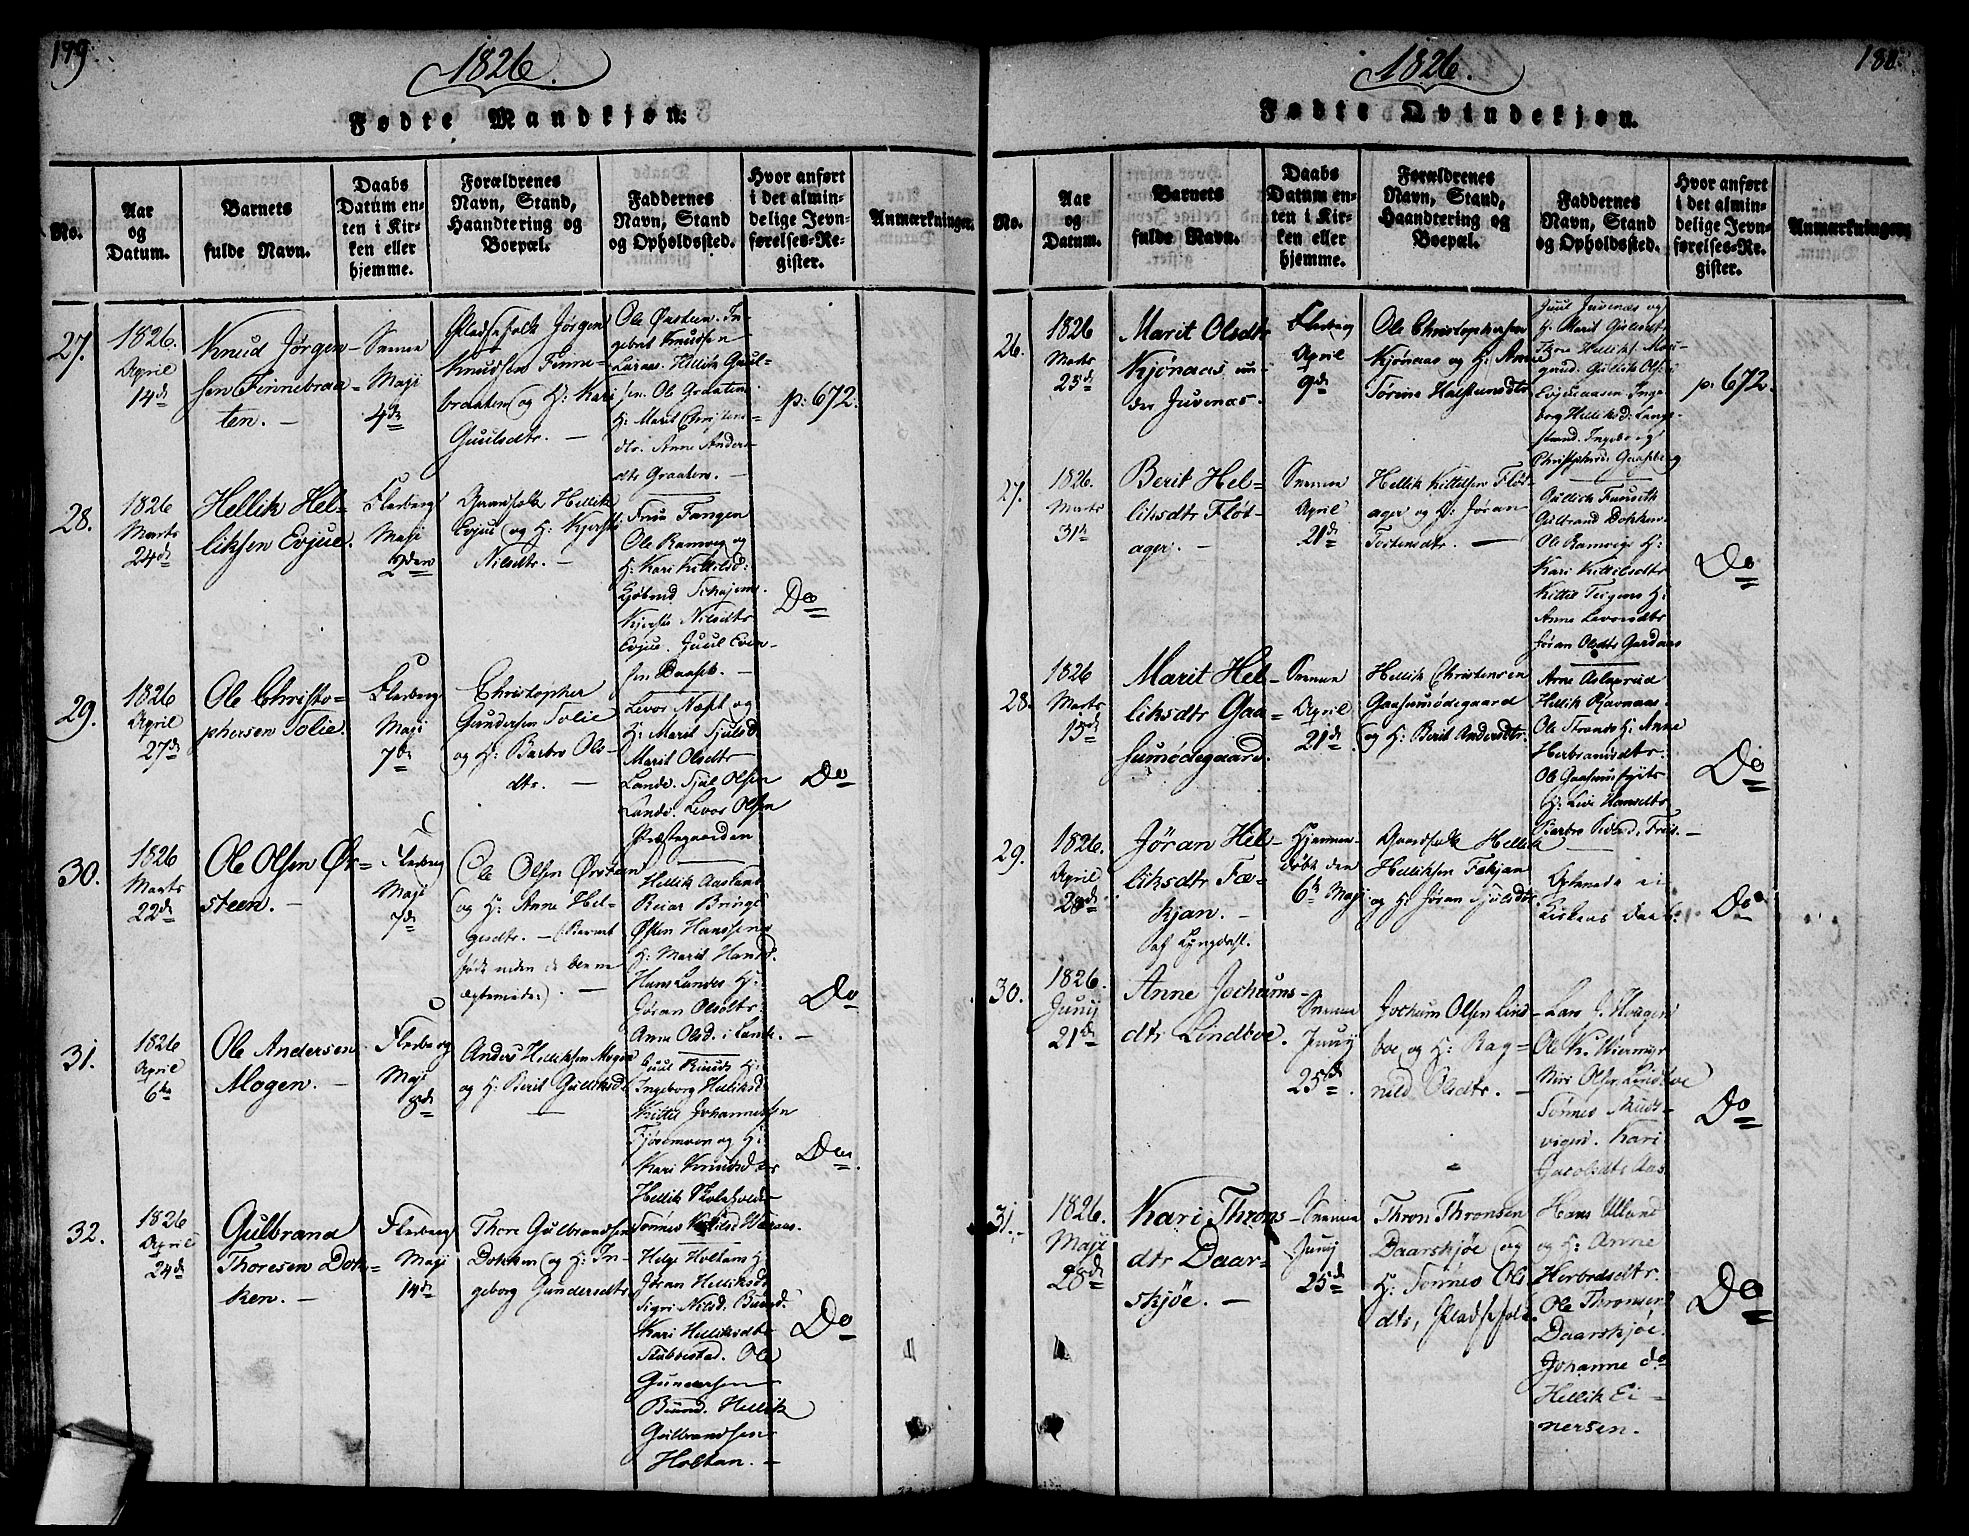 179.
1826.
Fødte Mandkjøn.
No.
Aar
og
Datum.
Barnets
fulde Navn.
Daabs
Datum en-
ten i Kir-
ken eller
hjemme.
Forældrenes
Navn, Stand,
Haandtering og
Boepæl.
Faddernes
Navn, Stand
og Opholdssted.
Hvor anført
i det almin-
delige Jevn-
førelses-Re-
gister.
Anmærkninger.
27.
1826.
April
14de
Knud Jørgen-
sen Finnebraa-
ten.
Svenne
Maji
4de
Pladsefolk Jørgen
Knudsen Finne-
braaten og H: Kari
Guulsdtr.
Ole Østeen. In-
gebrit Knudsen
Hellik Guul-
sen. Ole Graaten
H: Marit Christens-
dtr. Anne Anders-
dtr Graaten.
p: 672.
28.
1826
Marts
24de
Hellik Hel-
liksen Evjue.
Flesberg
Maji
Gaardfolk Hellik
Evjue og H: Kjersti
Nilsdtr.
Fangen
Ole Ramvig og
H: Kari Kittilsd:
Kjersti Nilsdtr
Evjue. Juul Even-
sen Daaset.
Do
29.
1826
April
27de
Ole Christo-
phersen Tolie.
Flesberg
Maji
7de
Christopher
Gundersen Tolie
og H: Barbro Ols-
dtr.
Levor Næset og
H: Marit Tjulsd.
Marit Olsdtr
Lande. Tjul Olsen
Lande. Levor Olsen
Præstegaarden
Do
30.
1826
Marts
22de
Ole Olsen Ør-
steen.
Flesberg
Maji
7de
Ole Olsen Ørsteen
og H: Anne Hel-
gesdtr. (Barnet
født uden
ægteviede)
Hellik Aasland
Reiar Bringe
Østen Hanssen
H: Marit Hansd.
Hans Landes H:
Jøran Olsdtr.
Anne Olsd. i Lande.
Do
31.
1826
April
6te
Ole Andersen
Mogen.
Flesberg
Maji
8de
Anders Helliksen Mogen
og H: Berit Gulliksdtr
Guul Ruuds H:
Ingeborg Helliksd.
Kittil Johannessen
og H:
Kari Knudsdtr
Hellik
Do
32.
1826
April
24de
Gulbrand
Thoresen Dok-
ken.
Flesberg
Maji
14de
Thore Gulbrandsen
Dokken og H: In-
geborg Gundersdtr
Helge Holtans H:
Jøran Helliksd
Sigri Nilsd. Buind.
Kari Helliksdtr
Stubbestad. Ole
Gundersen
Buind. Hellik
Gulbrandsen
Holtan.
Do
1826.
Fødte Qvindekjøn.
No.
Aar
og
Datum.
Barnets
fulde Navn.
Daabs
Datum en-
ten i Kir-
ken eller
hjemme.
Forældrenes
Navn, Stand,
Haandtering og
Boepæl.
Faddernes
Navn, Stand
og Opholdssted.
Hvor anført
i det almin-
delige Jevn-
førelses-Re-
gister.
Anmærkninger.
26.
1826
Marts
25de
Marit Olsdtr
Kjønaas un-
der Juvenæs.
Flesberg
April
9de
Ole Christophersen
Kjønaas og H: Anne
Tørine Halstensdtr.
Juul Juvenæs og
H: Marit Gulsdtr
Gullik Olsen
Evjueaasen Inge-
borg Helliksd:
Ingeborg
p. 672.
27.
1826.
Marts
31te
Berit Hel-
liksdtr Fløt-
ager.
Svenne
April
21de
Hellik Kittilsen Fløt-
ager og H: Jøran
Tostensdtr.
Gulbrand Dokken
Ole Ramvigs H:
Kari Kittilsdtr
Kittil Teigens H:
Anne Levorsdtr
Jøran Olsdtr Gardaas
Do
28.
1826
Marts
15de
Marit Hel-
liksdtr Gaa-
sumødegaard.
Svenne
April
21de
Hellik Christensen
Gaasumødegaard
og H: Berit Andersdtr.
Arne Aslagrud
Hellik Ravnaas.
Ole Strands H: Anne
Herbrandsdtr.
H: Live Hansdtr
Do
29.
1826.
April
28de
Jøran Hel-
liksdtr Fæ-
kjan.
af Lyngdahl.
Hjemme-
døbt den
6te Maji
Gaardfolk Hellik
Helliksen Fækjan
og H: Jøran Tjulsdtr
Do
30.
1826.
Junij
21de
Anne Jochums-
dtr Lindboe.
Svenne
Junij
25de.
Jochum Olsen Lind-
boe og H: Rag-
nild Olsdtr.
Lars J. Haugen
Olsen Lindboe
Kari
Jacobsdtr Aas
Do
31.
1826.
Maji
28de
Kari Throns-
dtr Daar-
skjøe.
Svenne
Junij
25de
Thron Thronsen
Daarskjøe og
H: Tønnes Ols-
dtr, Pladsefolk.
Hans Ulland
og H: Anne
Herbrdsdtr.
Ole Thronsen
Daarskjøe.
Johanne do
Hellik Ei-
nersen.
Do